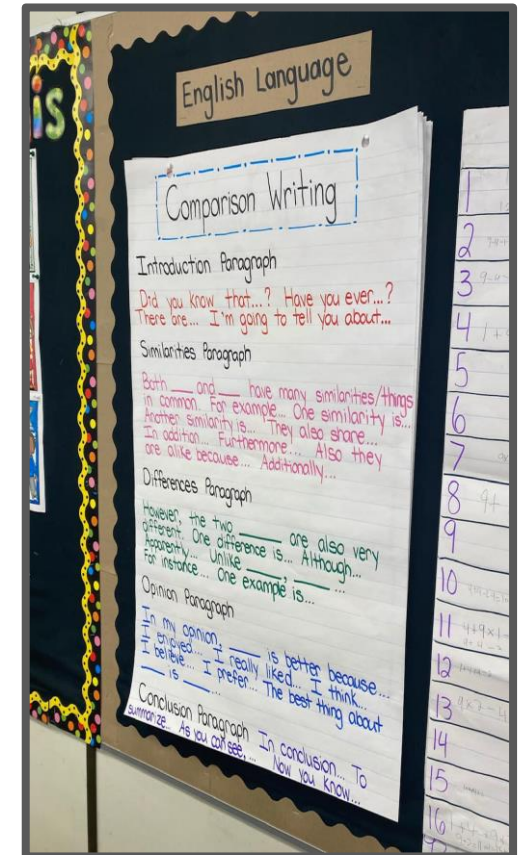 is
English Language
Comparison Writing
Introduction Paragraph
Did you know that...? Have you ever...?
There are... I'm going to tell you about...
Similarities Paragraph
Both ___ and ___ have many similarities/things
in common. For example... One similarity is...
Another similarity is... They also share...
In addition... Furthermore... Also they
are alike because... Additionally...
Differences Paragraph
However, the two ___ are also very
different. One difference is... Although...
Apparently... Unlike ___, ___ ...
For instance... One example is...
Opinion Paragraph
In my opinion, ___ is better because...
I enjoyed... I really liked... I think...
I believe... I prefer... The best thing about
___ is ___...
Conclusion Paragraph In conclusion... To
summarize... As you can see, ... Now you know...
1
2
3
4
5
6
7
8
9
10
11
12
13
14
15
16